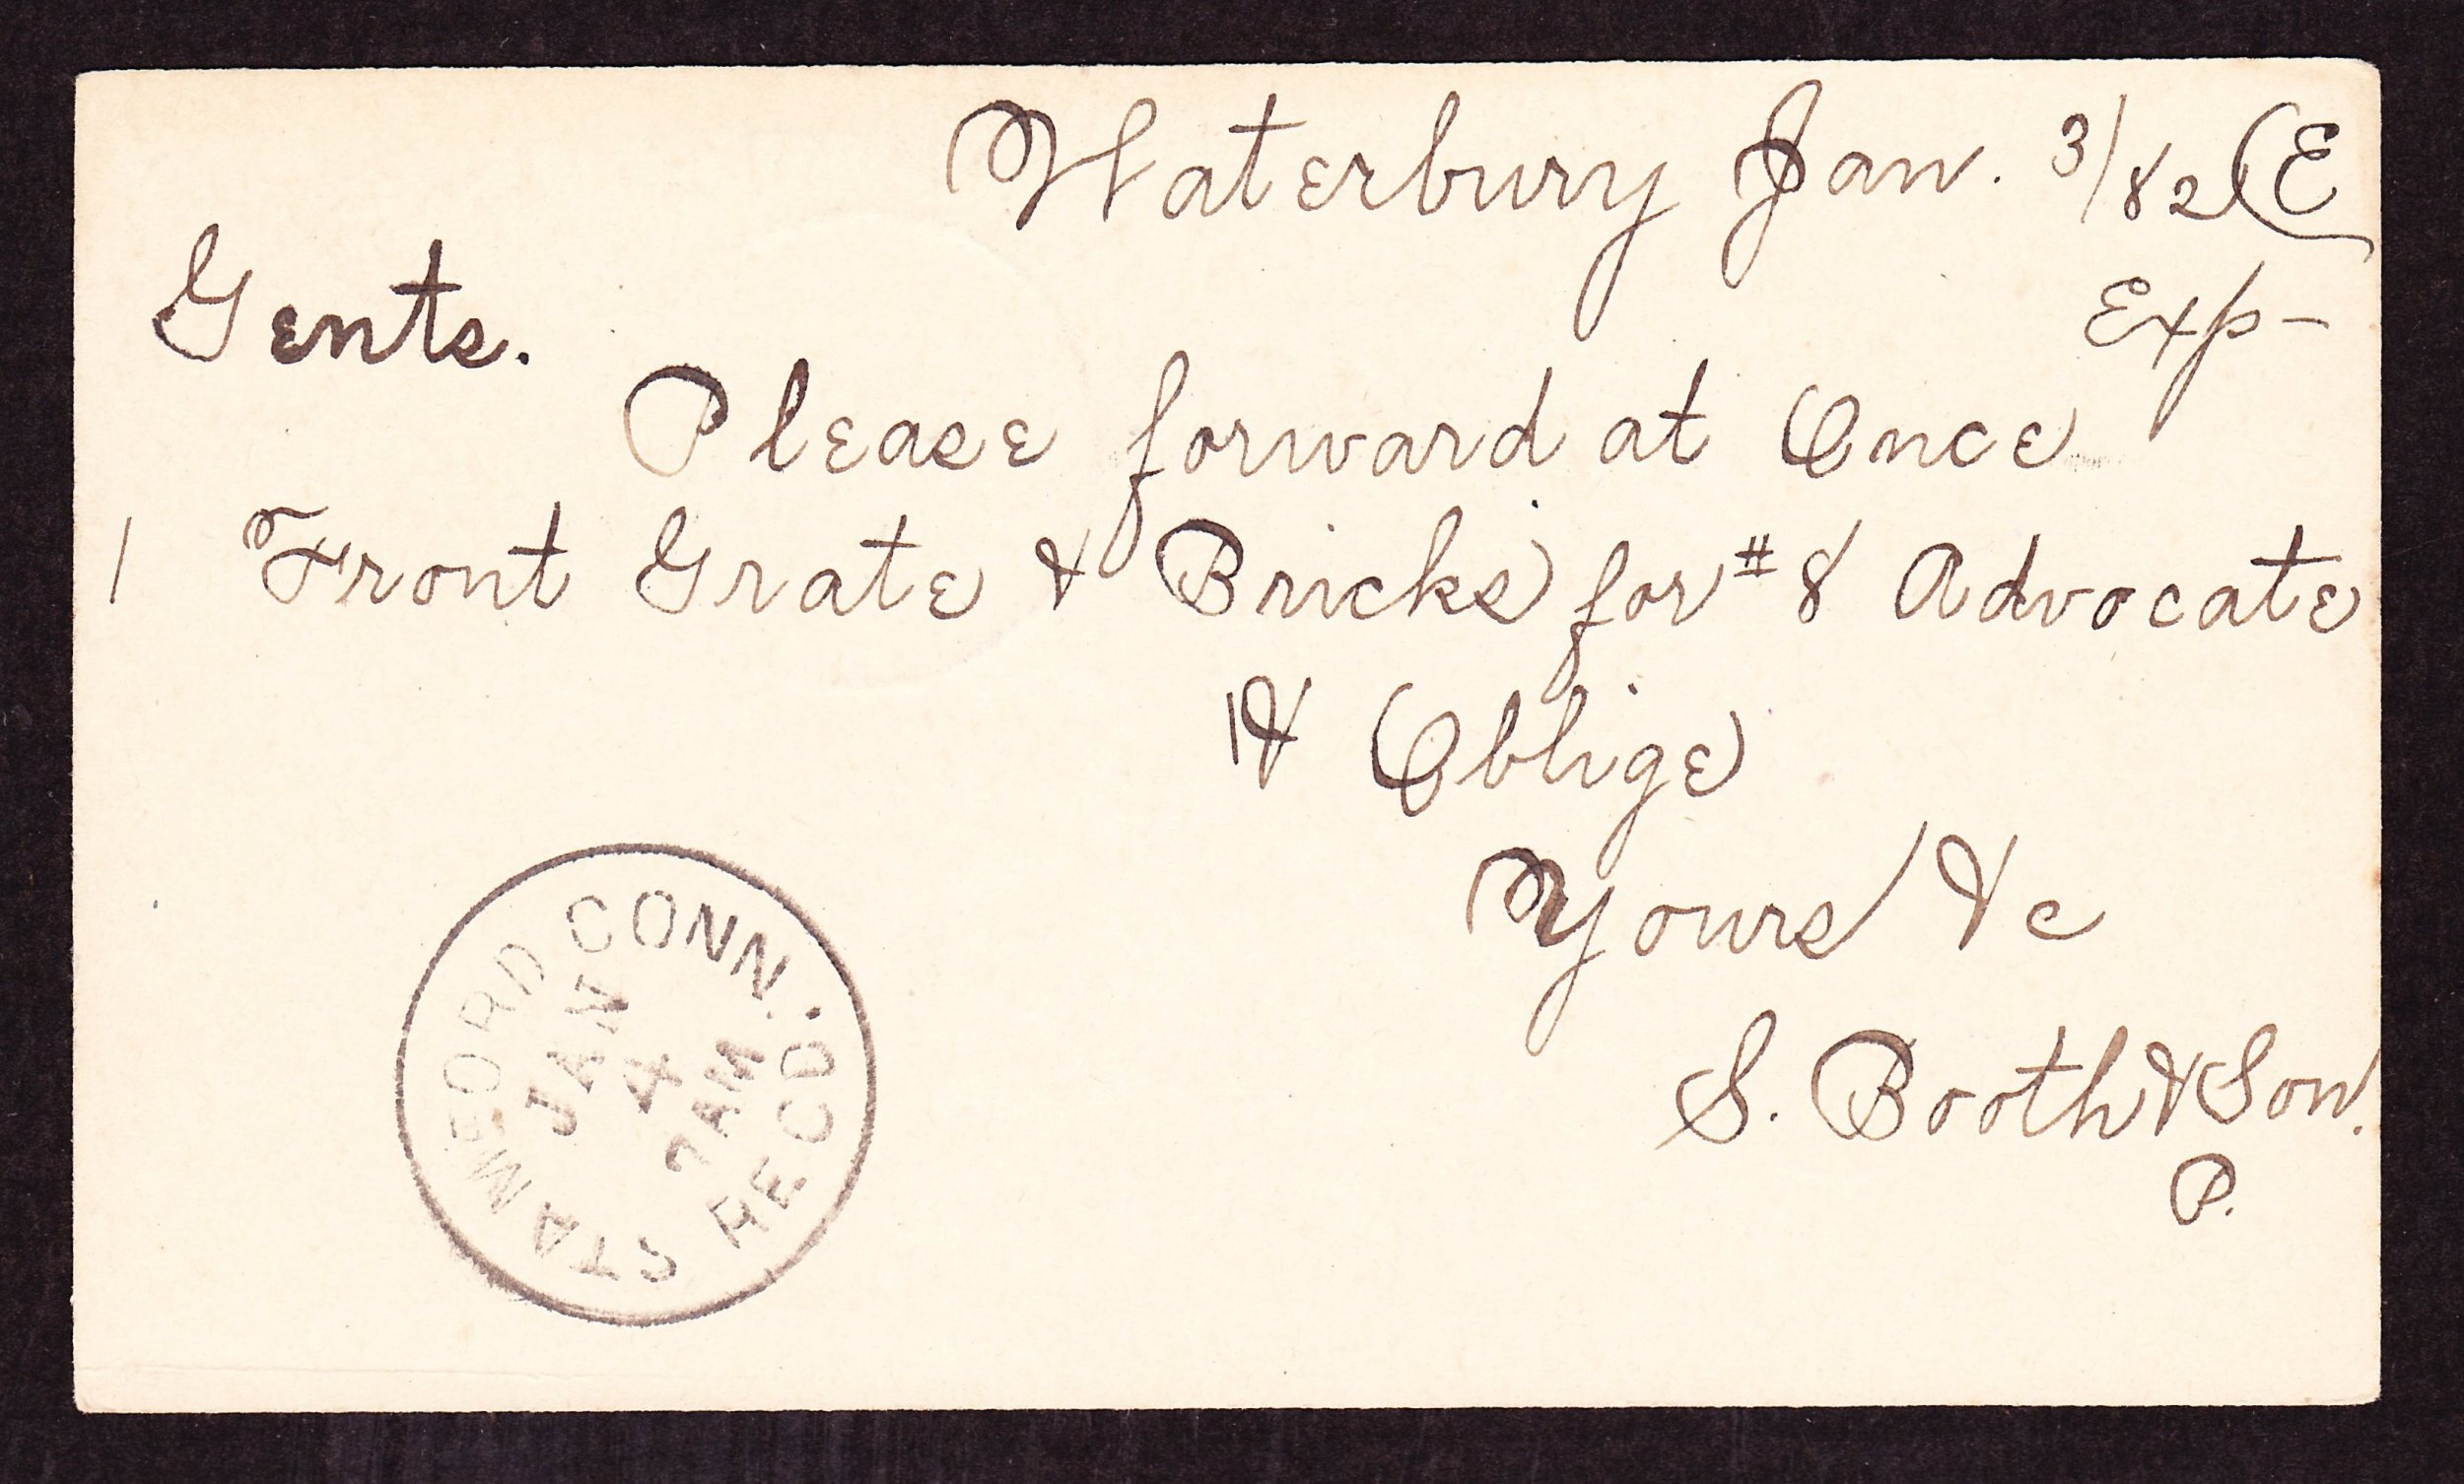 Waterbury Jan. 3/82 (E
Exp-
Gents.
Please forward at Once
1 Front Grate & Bricks for #8 Advocate
& Oblige
Yours &c
S. Booth & Son.
P.
STAMFORD CONN. REC'D.
JAN
4
7AM